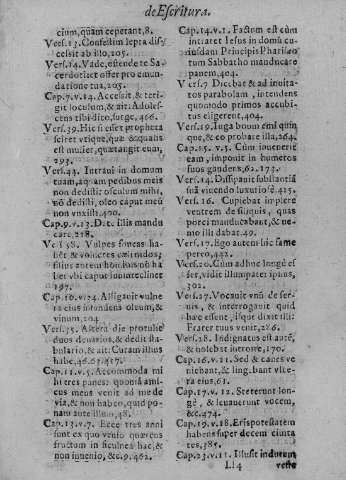 de Escritura.
cium, quàm ceperant, 8.
Vers. 13. Confestim lepra discessit
ab illo, 205.
Vers. 14. Vade, ostende te Sacerdoti
et offer pro emundatione
tua, 205.
Cap. 7. v. 14. Accessit, & tetigit
loculum, & ait: Adolescens
tibi dico, surge, 466.
Vers. 39. Hic si esset propheta
sciret vtique, quæ & qualis
est mulier, quæ tangit eum,
293.
Vers. 44. Intraui in domum
tuam, aquam pedibus meis
non dedisti: osculum mihi,
nõ dedisti, oleo caput meũ
non vnxisti, 400.
Cap. 9. v. 13. Dat. illis manducare,
218.
Vers 58. Vulpes foueas habẽt
& volucres cæli nidos;
filius autem hominis nõ habet
vbi caput suum reclinet
197.
Cap. 10. v. 34. Alligauit vulnera
eius infundens oleum, &
vinum, 204
Vers. 35. Altera die protulit
duos denarios, & dedit stabulario,
& ait: Curam illius
habe, 46. 67. 417.
Cap. 11. v. 5. Accommoda mihi
tres panes: quoniã amicus
meus venit ad me de
via, & non habeo, quid ponam
ante illum, 48.
Cap. 13. v. 7. Ecce tres anni
sunt ex quo venio quærens
fructum in ficulnea hac, &
non inuenio, &c. 9. 462.
Cap. 14. v. 1. Factum est cùm
intraret Iesus in domũ cuiusdam
Principis Pharisæorum
Sabbatho manducare
panem, 404.
Vers. 7 Dicebat & ad inuitatos
parabolam, intendens
quomodo primos accubitus
eligerent, 404.
Vers. 19. Iuga boum emi quinque,
& eo probare illa, 264.
Cap. 15. v. 5. Cùm inuenerit
eam, imponit in humeros
suos gaudens, 62. 173.
Vers. 14. Dissipauit substantiã
suã viuendo luxuriosè, 415.
Vers. 16. Cupiebat implere
ventrem de siliquis, quas
porci manducabant, & nemo
illi dabat, 49.
Vers. 17. Ego autem hic fame
pereo, 442.
Vers. 20. Cùm adhuc longè esset,
vidit illum pater ipsius,
302.
Vers. 27. Vocauit vnũ de seruis,
& interrogauit quid
hæc essent, isque dixit illi:
Frater tuus venit, 286.
Vers. 28. Indignatus est autẽ,
& nolebat introire, 170.
Cap. 16. v. 21. Sed & canes veniebant,
& lingebant vlcera
eius, 61.
Cap. 17. v. 12. Steterunt longè,
& leuauerunt vocem,
&c. 474.
Cap. 19. v. 18. Eris potestatem
habens super decem ciuitates,
385.
Cap. 23. v. 11. Illusit indutum
Ll 4 veste